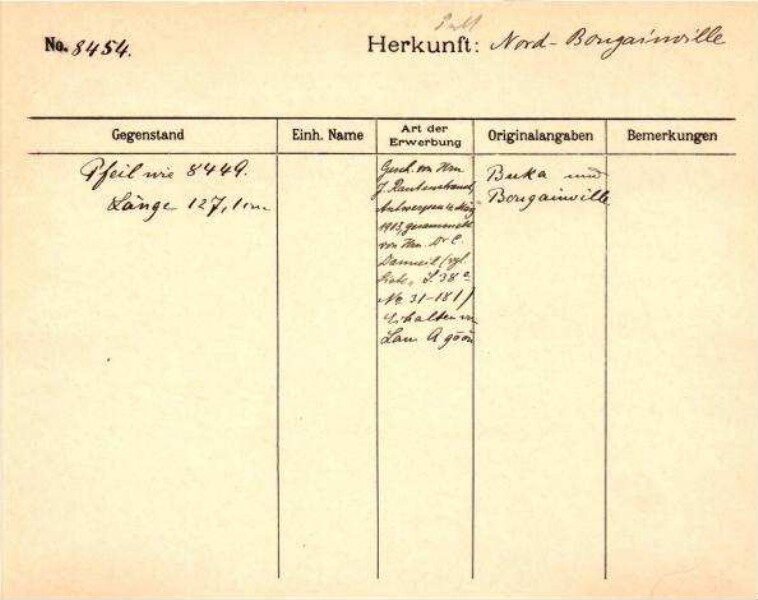 No. 8454.
Herkunft: Nord-Bougainville
Gegenstand
Einh. Name
Art der Erwerbung
Originalangaben
Bemerkungen
Pfeil wie 8449.
Länge 127,1 cm
Gesch. von Hrn
J. Rautenstrauch,
Antwerpen
1913, gesammelt
von Hrn. Dr E.
(vgl.
S. 38
No 31-181)
Erhalten
Buka und
Bougainville